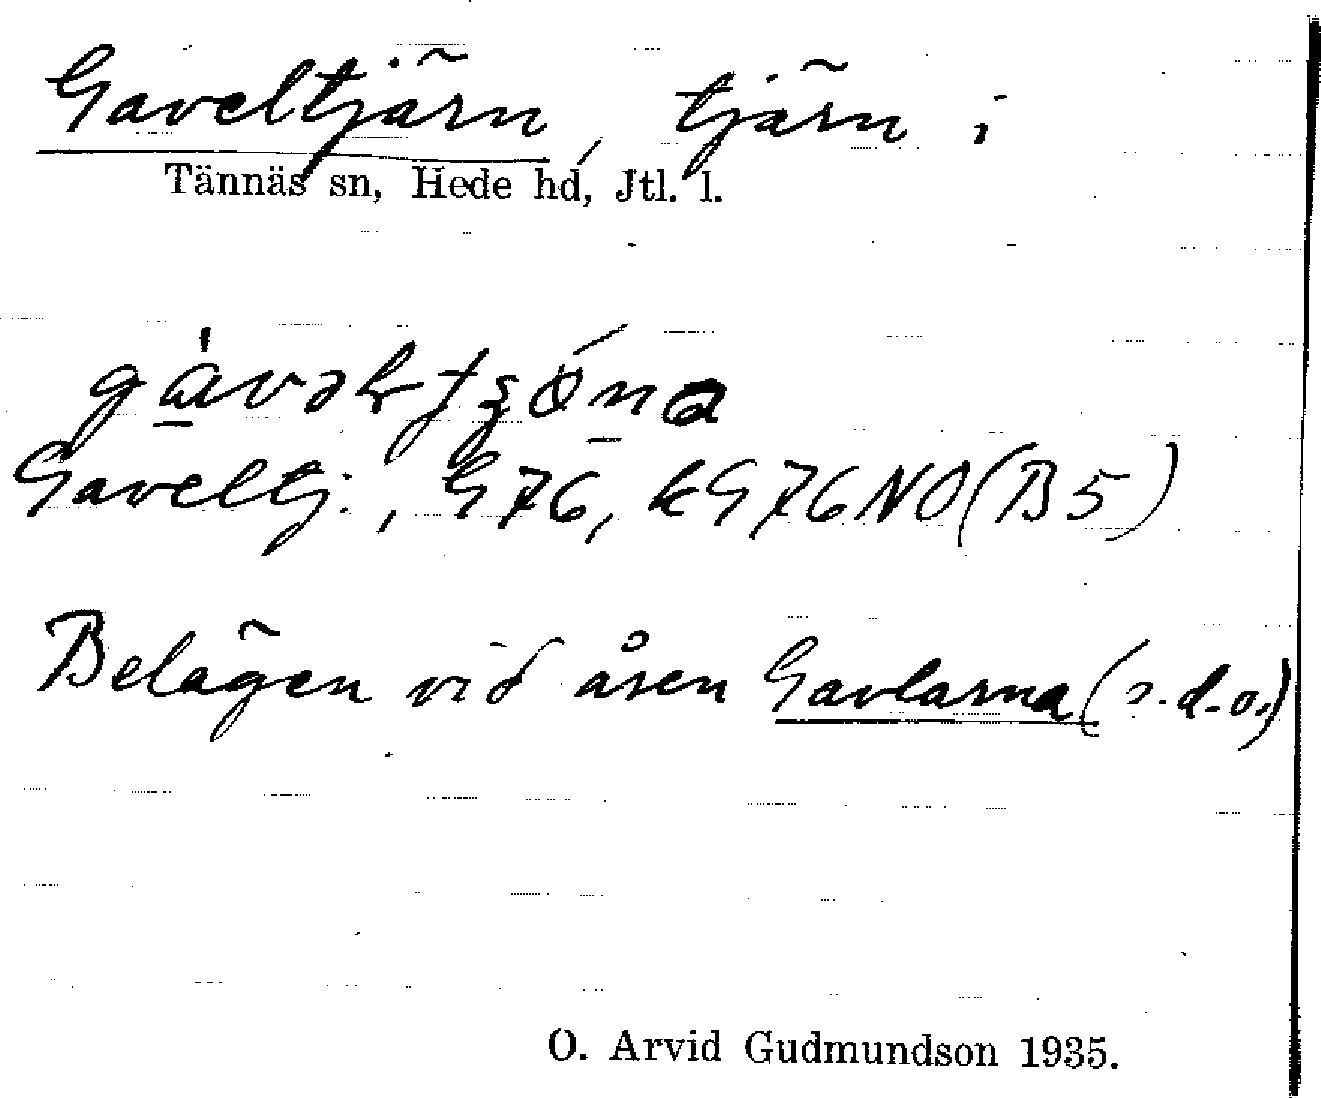 Gaveltjärn, tjärn i
Tännäs sn, Hede hd, Jtl. l.
Gaveltj., G76, kG76NO(B5)
Belägen vid åsen Gavlarna (s.d.o.)
O. Arvid Gudmundson 1935.